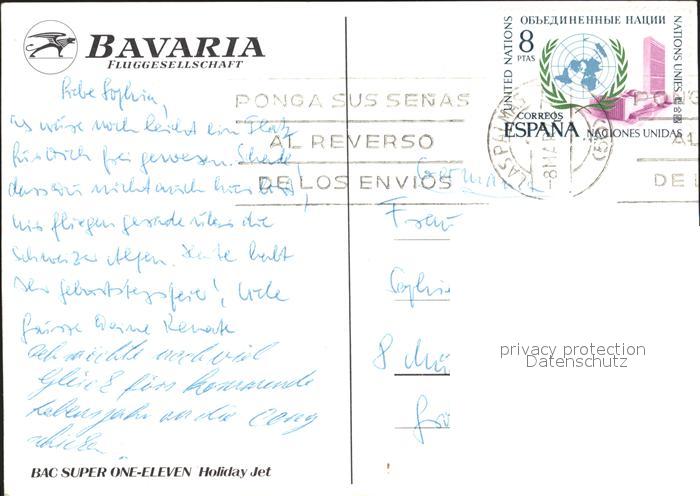 BAVARIA
FLUGGESELLSCHAFT
UNITED NATIONS
ОБЪЕДИНЕННЫЕ НАЦИИ
NATIONS UNIES
8
PTAS
CORREOS
ESPAÑA
NACIONES UNIDAS
PONGA SUS SEÑAS
AL REVERSO
DE LOS ENVIOS
LAS PALMAS
Liebe Sophia,
es wäre noch leicht ein Platz
für Dich frei gewesen. Schade
dass Du nicht auch hier bist!
Wir fliegen gerade über die
Schweizer Alpen. Heute halt
Geburtstagsfeier!, Liebe
Grüsse Deine Renate
Ich möchte noch viel
Glück fürs kommende
Lebensjahr
Germania
Frau
Sophie
8 Mü
Grü
privacy protection
Datenschutz
BAC SUPER ONE-ELEVEN Holiday Jet